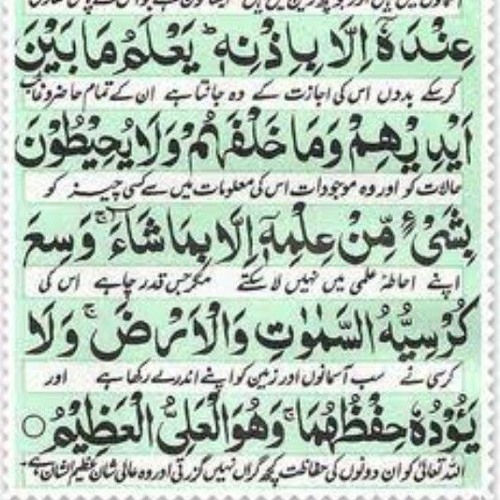 عِنْدَهٗۤ اِلَّا بِاِذْنِهٖ ؕ یَعْلَمُ مَا بَیْنَ
کر سکے بدوں اس کی اجازت کے وہ جانتا ہے ان کے تمام حاضر و غائب
اَیْدِیْهِمْ وَمَا خَلْفَهُمْ وَلَا یُحِیْطُوْنَ
حالات کو اور وہ موجودات اس کی معلومات میں سے کسی چیز کو
بِشَیْءٍ مِّنْ عِلْمِهٖۤ اِلَّا بِمَا شَآءَ ۚ وَسِعَ
اپنے احاطۂ علمی میں نہیں لا سکتے مگر جس قدر چاہے اس کی
کُرْسِیُّهُ السَّمٰوٰتِ وَالْاَرْضَ ۚ وَلَا
کرسی نے سب آسمانوں اور زمین کو اپنے اندر لے رکھا ہے اور
یَـُٔوْدُهٗ حِفْظُهُمَا ۚ وَهُوَ الْعَلِیُّ الْعَظِیْمُ
اللہ تعالیٰ کو ان دونوں کی حفاظت کچھ گراں نہیں گزرتی اور وہ عالی شان عظیم الشان ہے۔